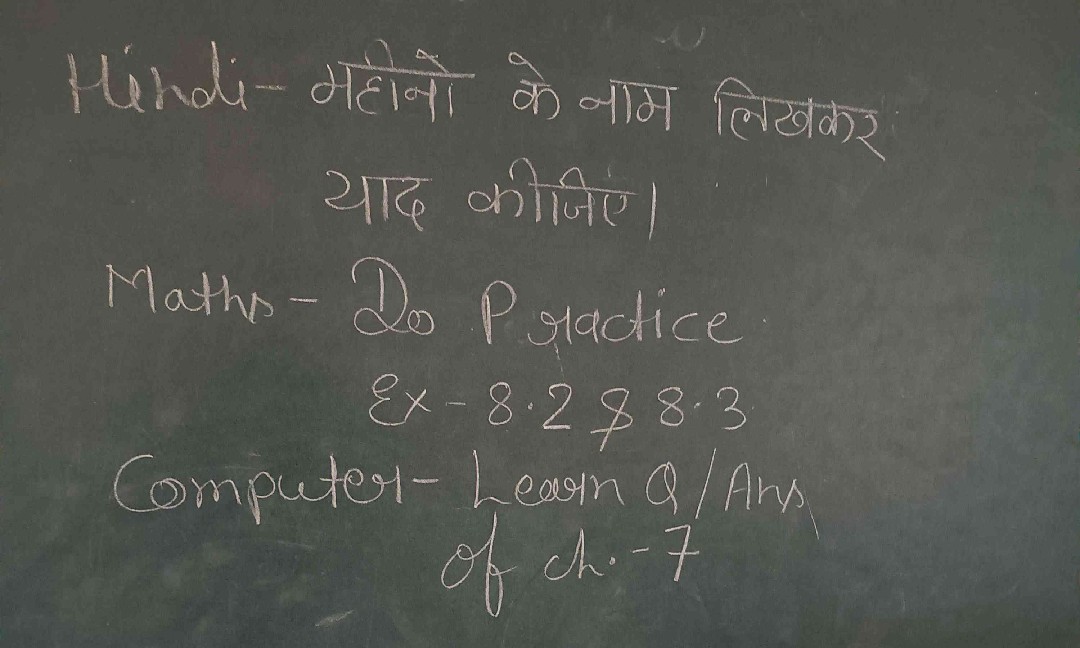 Hindi - महीनों के नाम लिखकर
याद कीजिए।
Maths - Do Practice
Ex - 8.2 & 8.3
Computer - Learn Q/Ans
of ch. - 7